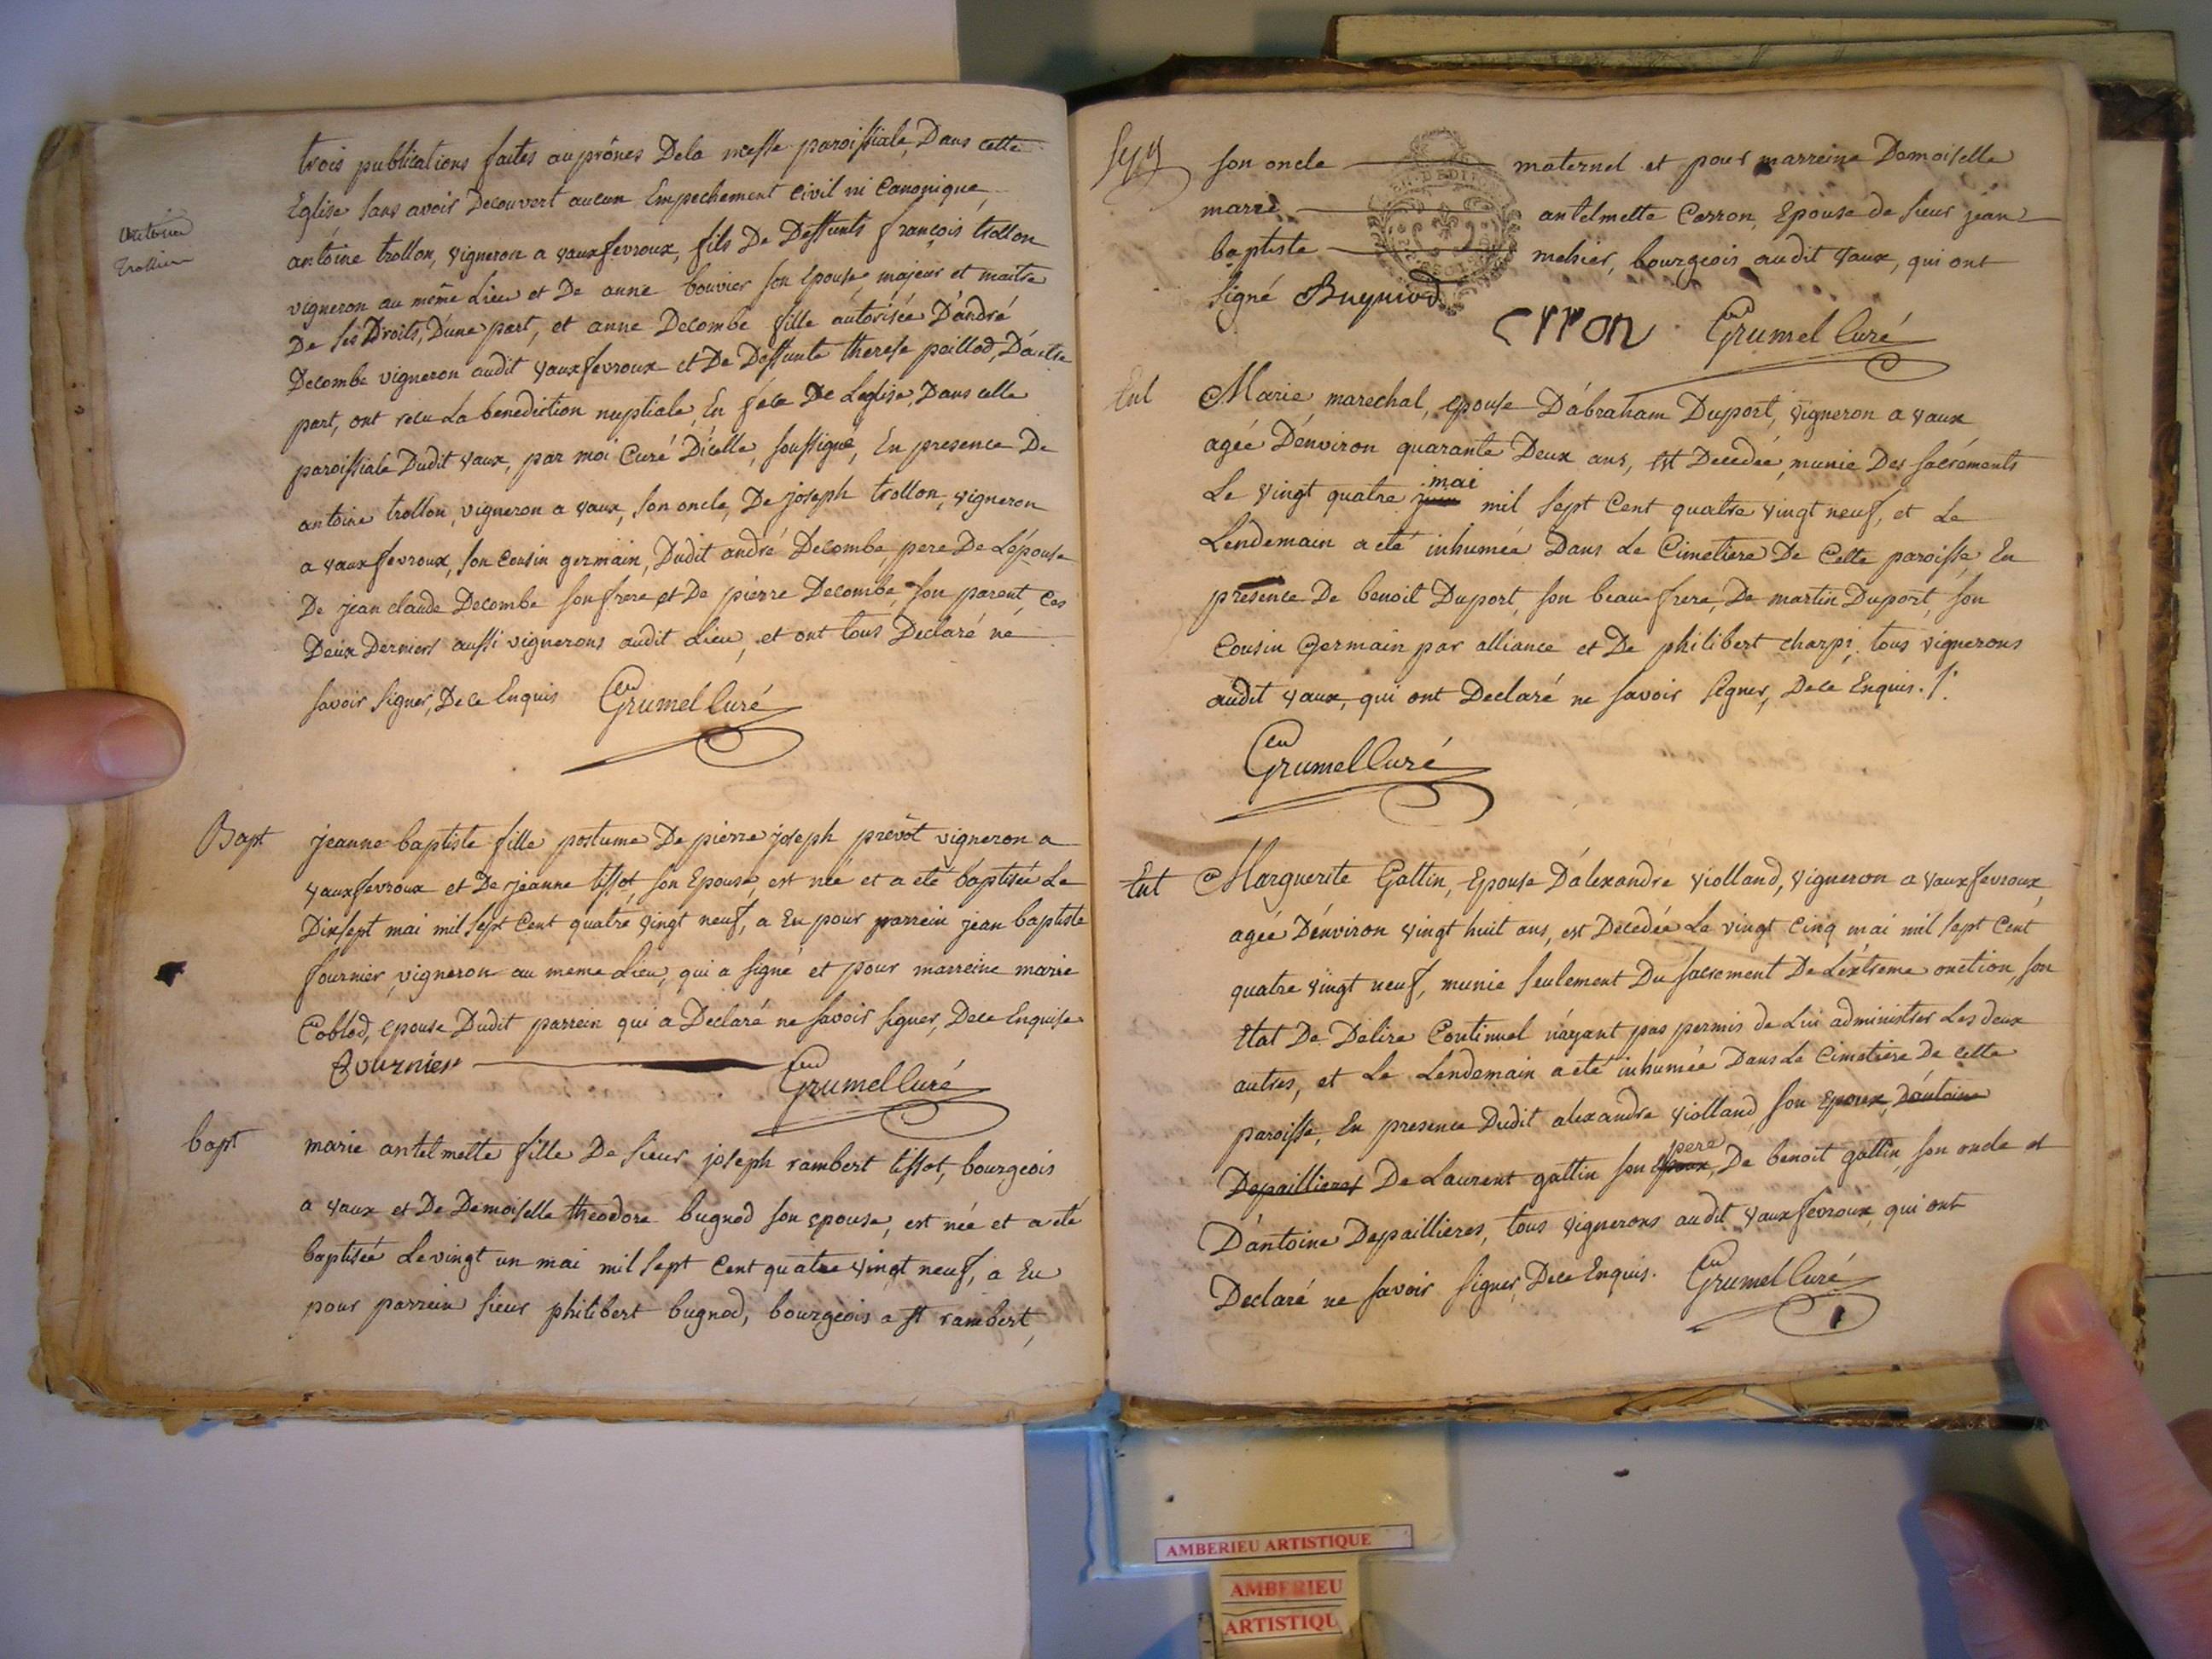 trois publications faites au prônes De la messe paroissiale, Dans cette
Eglise, sans avoir Decouvert aucun Empechement civil ni Canonique,
antoine trollon, vigneron a vauxfevroux, fils De Deffunts françois trollon
vigneron au même Lieu et De anne bouvier son Epouse, majeur et maitre
De ses Droits, D'une part, et anne Decombe fille autorisée D'andré
Decombe vigneron audit vauxfevroux et De Deffunte therese paillod, D'autre
part, ont recu La benediction nuptiale, En face De L'eglise, Dans celle
paroissiale Dudit vaux, par moi Curé D'icelle, soussigné, En presence De
antoine trollon, vigneron a vaux, son oncle, De joseph trollon, vigneron
a vauxfevroux, son cousin germain, Dudit andré Decombe, pere De L'épouse
De jean claude Decombe son frere et De pierre Decombe, son parent, ces
Deux Derniers aussi vignerons audit Lieu, et ont tous Declaré ne
savoir signer, De ce Enquis Grumel Curé
Bapt
jeanne baptiste fille postume De pierre joseph prevôt vigneron a
vauxfevroux et De jeanne tissot, son Epouse, est née et a eté baptisée Le
Dixsept mai mil sept Cent quatre vingt neuf, a Eu pour parrein jean baptiste
fournier, vigneron au meme Lieu, qui a signé et pour marreine marie
Coblod, epouse Dudit parrein qui a Declaré ne savoir signer, De ce Enquise
fournier Grumel Curé
bapt
marie antelmette fille De sieur joseph rambert tissot, bourgeois
a vaux et De Demoiselle theodore bugnod son epouse, est née et a eté
baptisée Le vingt un mai mil sept Cent quatre vingt neuf, a Eu
pour parrein sieur philibert bugnod, bourgeois a st rambert,
son oncle maternel et pour marreine Demoiselle
marie antelmette Carron, Epouse de sieur jean
baptiste bourgeois audit vaux, qui ont
signé Bugniod
Grumel Curé
Ent
Marie marechal, epouse D'abraham Duport, vigneron a vaux
agée D'environ quarante Deux ans, est Decedée, munie Des sacréments
Le vingt quatre juin mai mil sept Cent quatre vingt neuf, et Le
Lendemain a eté inhumée Dans Le Cimetiere De Cette paroisse, En
présence De benoit Duport, son beau frere, De martin Duport, son
cousin Germain par alliance et De philibert charpi, tous vignerons
audit vaux, qui ont Declaré ne savoir signer, De ce Enquis.
Grumel Curé
Ent
Marguerite Gallin, Epouse D'alexandre violland, vigneron a vauxfevroux,
agée D'environ vingt huit ans, est Decedée Le vingt Cinq mai mil sept Cent
quatre vingt neuf, munie seulement Du sacrement De L'extreme onction, son
Etat De Delire Continuel n'ayant pas permis de Lui administrer Les deux
autres, et Le Lendemain a eté inhumée Dans Le Cimetiere De cette
paroisse, En presence Dudit alexandre violland, son Epoux, D'antoine
Depaillieres De Laurent gallin son Epoux pere, De benoit gallin, son oncle et
D'antoine Depaillieres, tous vignerons audit vauxfevroux, qui ont
Declaré ne savoir signer, De ce Enquis. Grumel Curé
AMBERIEU ARTISTIQUE
AMBERIEU
ARTISTIQU